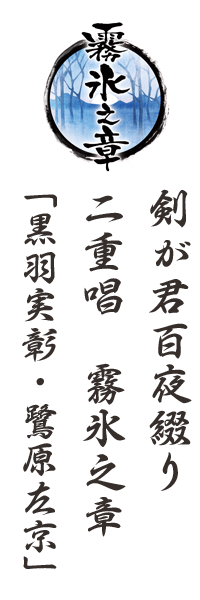 霧氷之章
剣が君百夜綴り
二重唱　霧氷之章
「黒羽実彰・鷺原左京」